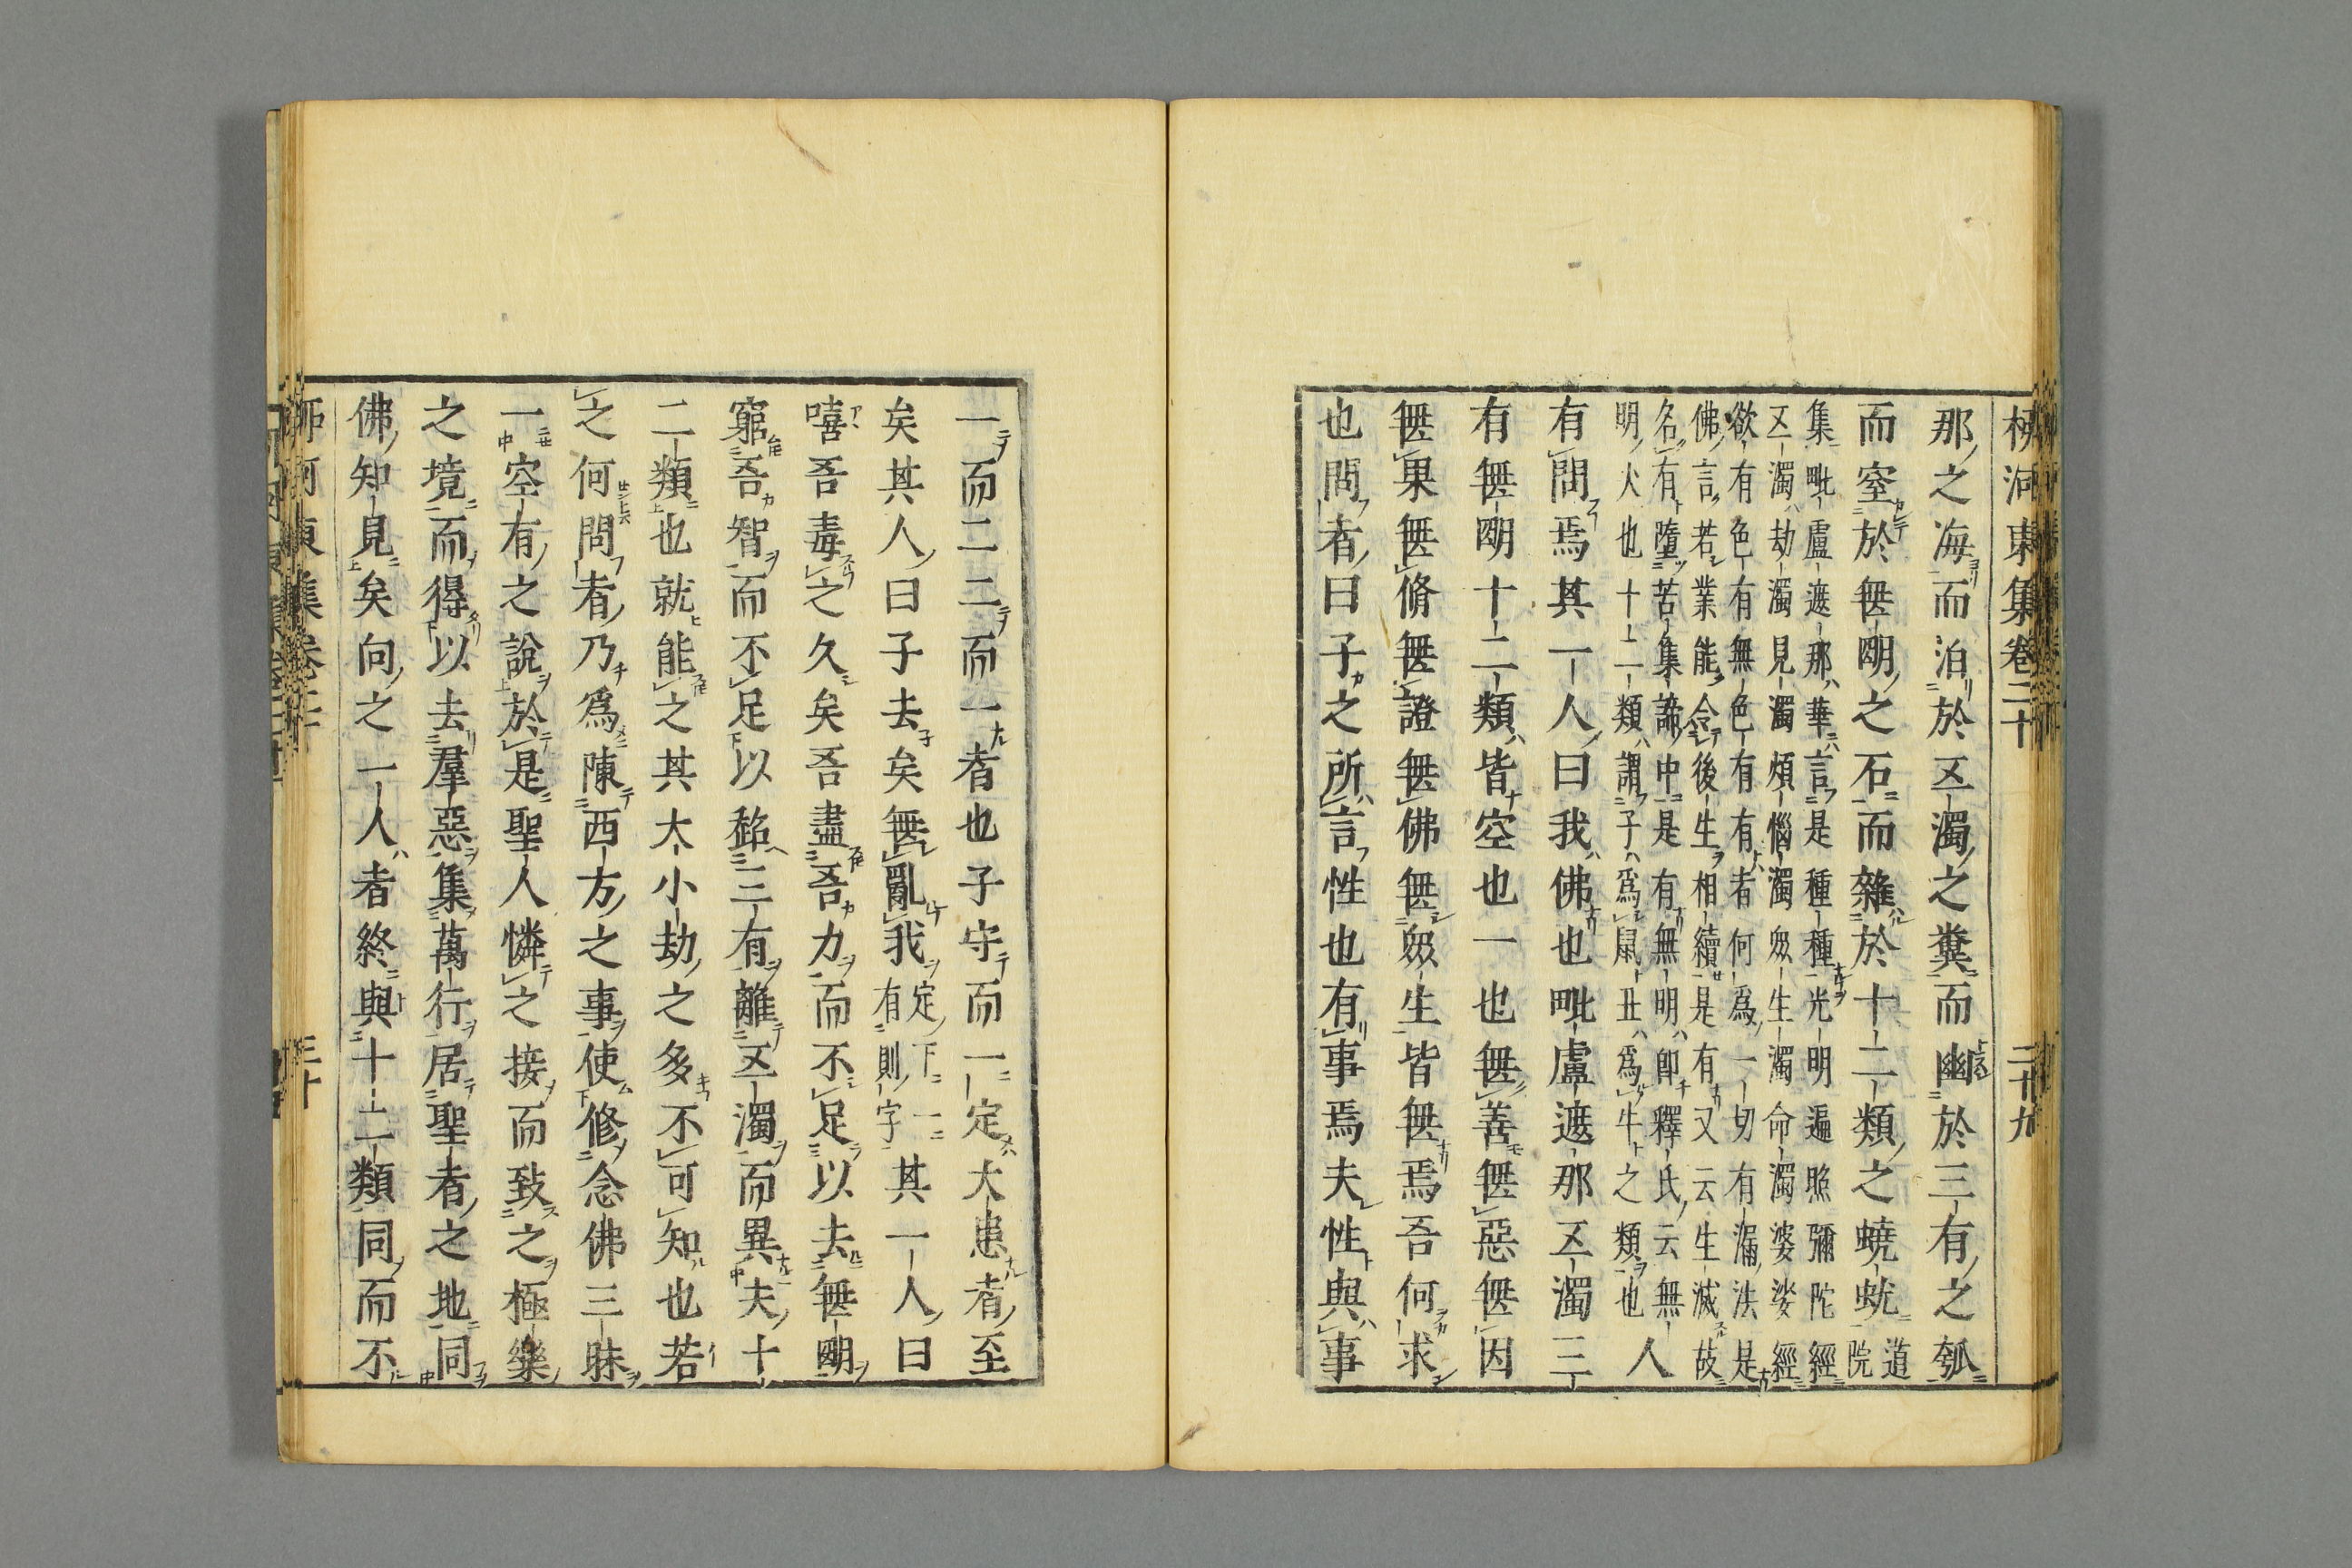 柳河東集卷二十　二十九
那之海而泊於五濁之糞而幽於三有之瓠
而窒於無明之石而雜於十二類之蟯蚘道院
集毗盧遮那華言是種種光明遍照彌陀經
五濁劫濁見濁煩惱濁衆生濁命濁婆娑經
欲有色有無色有有者何爲一切有漏法是
佛言若業能令後生相續是有又云生滅故
名有墮苦集諦中是有無明即釋氏云無
明火也十二類謂子爲鼠丑爲牛之類也　人
有問焉其一人曰我佛也毗盧遮那五濁三
有無明十二類皆空也一也無善無惡無因
無果無脩無證無佛無衆生皆無焉吾何求
也問者曰子之所言性也有事焉夫性與事
一而二二而一者也子守而一定大患者至
矣其人曰子去矣無亂我定下一有則字其一人曰
嘻吾毒之久矣吾盡吾力而不足以去無明
窮吾智而不足以超三有離五濁而異夫十
二類也就能之其大小劫之多不可知也若
之何問者乃爲陳西方之事使修念佛三昧
一空有之說於是聖人憐之接而致之極樂
之境而得以去羣惡集萬行居聖者之地同
佛知見矣向之一人者終與十二類同而不
河東集卷二十　三十